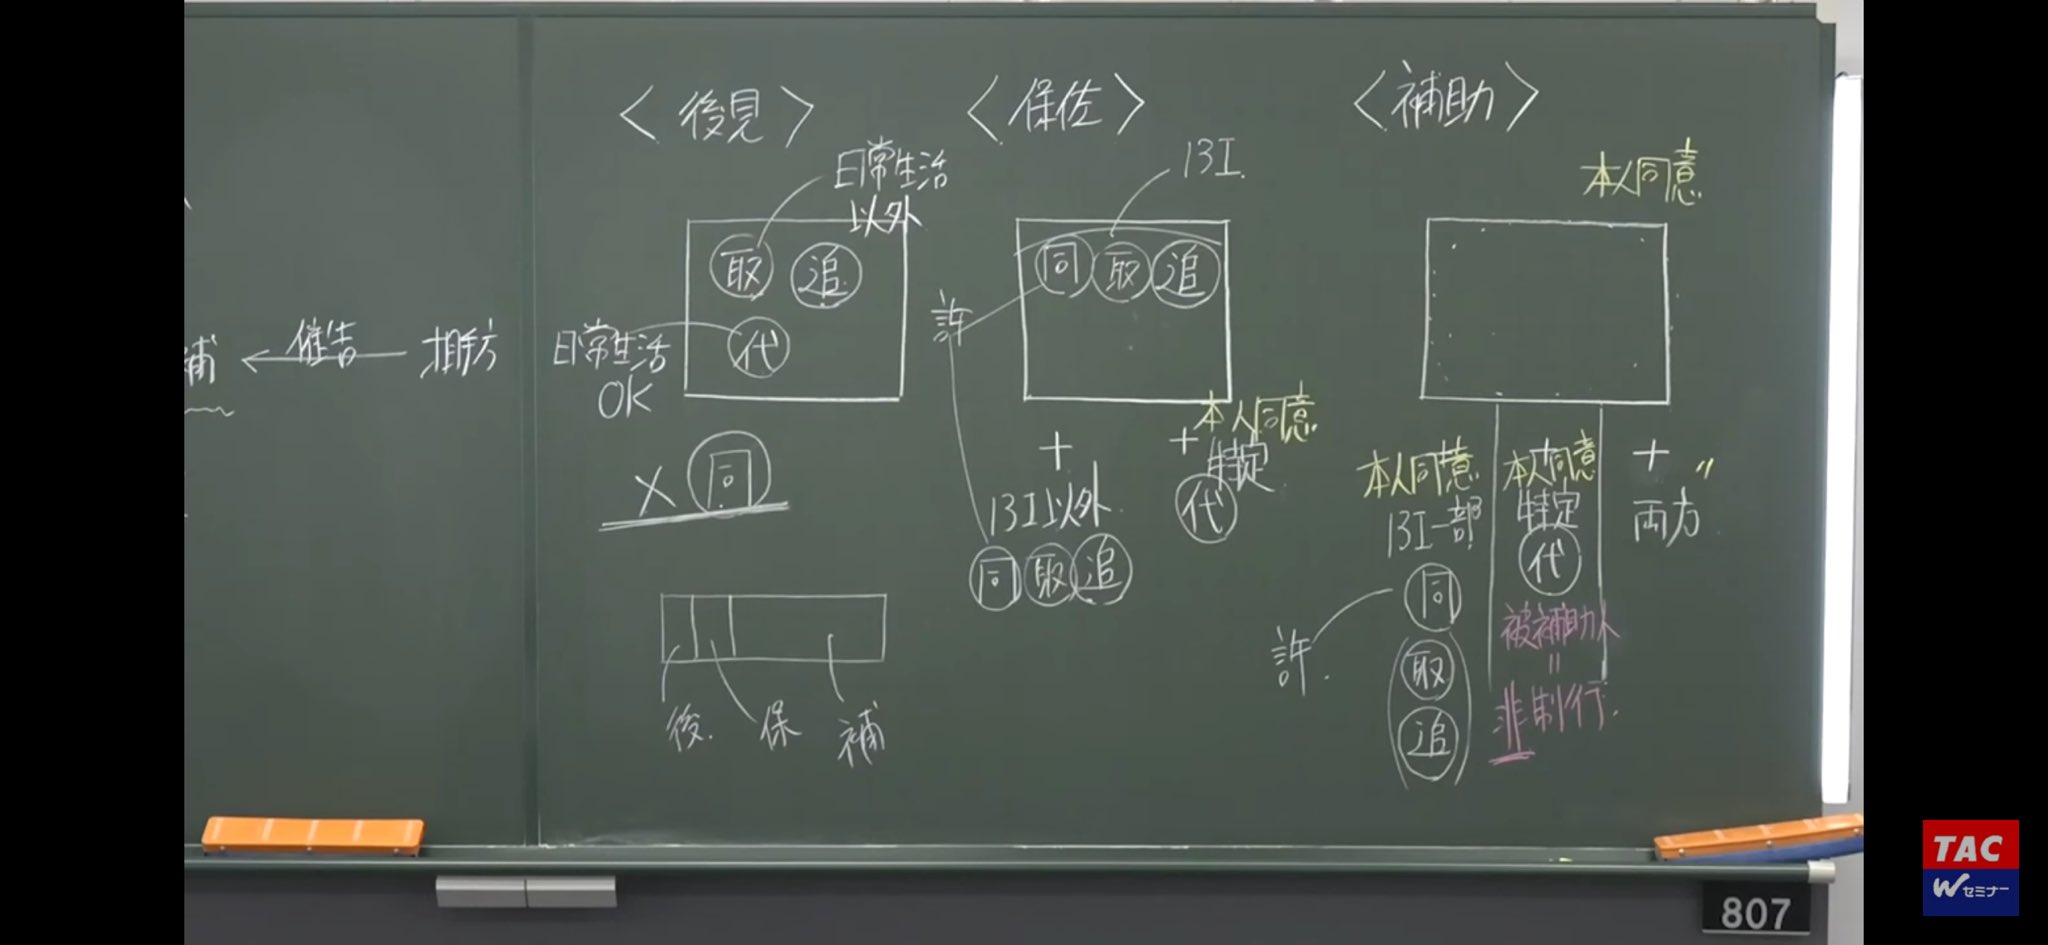 補 ← 催告 相手方
〈後見〉
日常生活
以外
取 追
代
日常生活
OK
× 同
後. 保 補
〈保佐〉
13Ⅰ.
同 取 追
許
+
13Ⅰ以外
同 取 追
本人同意
+ 特定
代
〈補助〉
本人同意
本人同意
13Ⅰ一部
同
取
追
許.
本人同意
+
特定
代
被補助人
=
非制行.
+ 〃
両方
TAC
Wセミナー
807